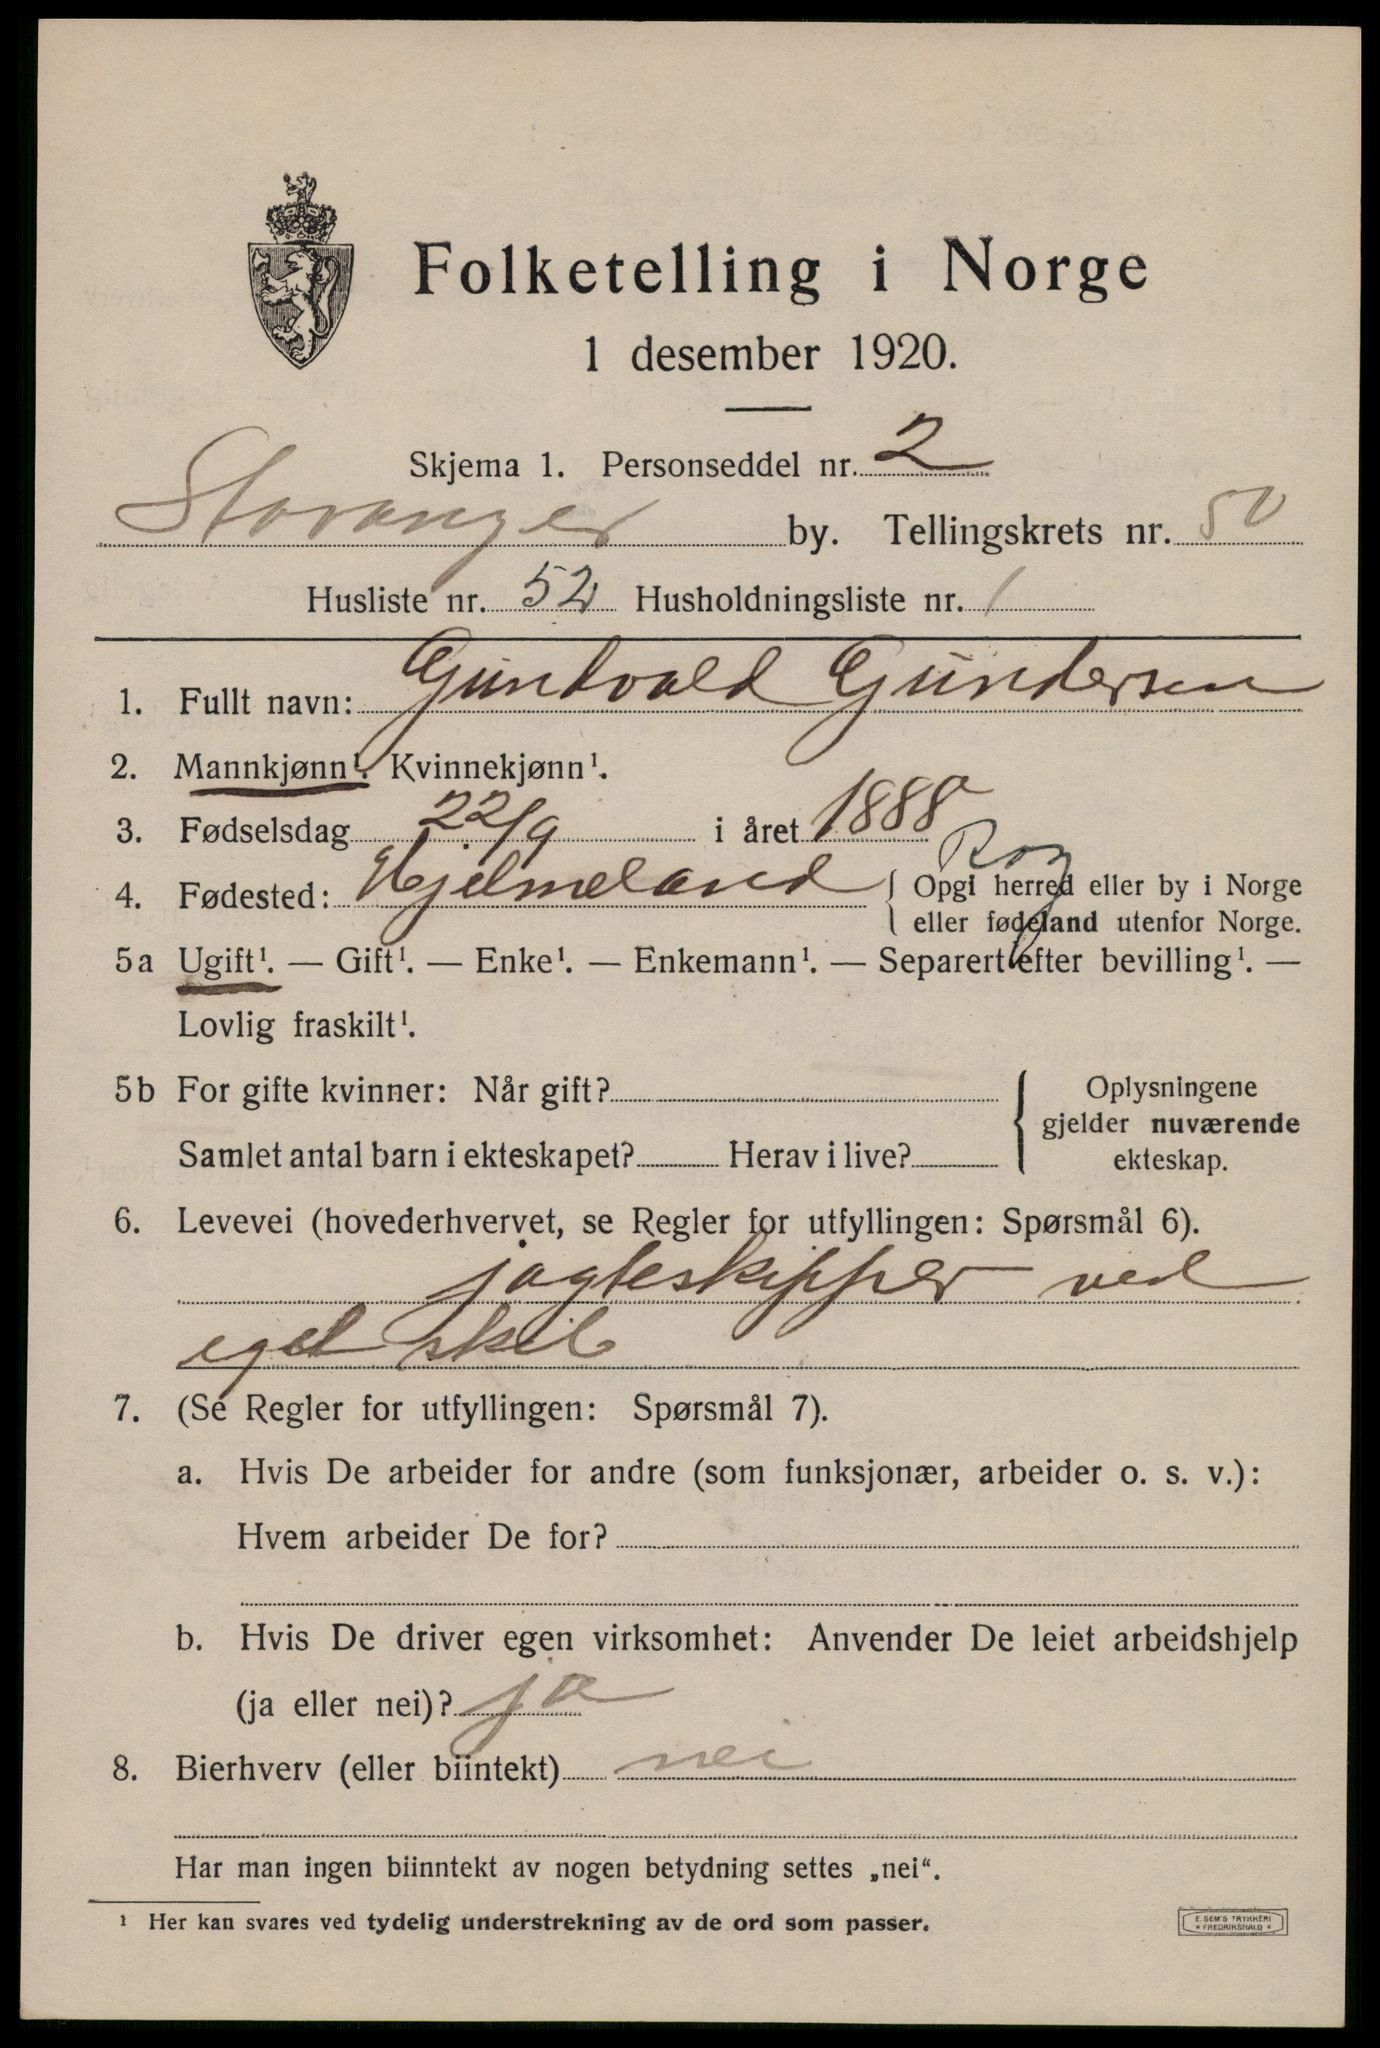 Folketelling i Norge
1 desember 1920.
Skjema 1. Personseddel nr. 2
Stavanger by. Tellingskrets nr. 50
Husliste nr. 52 Husholdningsliste nr. 1
1. Fullt navn: Gundvald Gundersen
2. Mannkjønn¹. Kvinnekjønn¹.
3. Fødselsdag 22/9 i året 1888
Rog
4. Fødested: Hjelmeland { Opgi herred eller by i Norge
eller fødeland utenfor Norge.
5a Ugift¹. — Gift¹. — Enke¹. — Enkemann¹. — Separert efter bevilling¹. —
Lovlig fraskilt¹.
5b For gifte kvinner: Når gift?
Samlet antal barn i ekteskapet? Herav i live?
Oplysningene
gjelder nuværende
ekteskap.
6. Levevei (hovederhvervet, se Regler for utfyllingen: Spørsmål 6).
jagteskipper ved
eget skib
7. (Se Regler for utfyllingen: Spørsmål 7).
a. Hvis De arbeider for andre (som funksjonær, arbeider o. s. v.):
Hvem arbeider De for?
b. Hvis De driver egen virksomhet: Anvender De leiet arbeidshjelp
(ja eller nei)? ja
8. Bierhverv (eller biintekt) nei
Har man ingen biinntekt av nogen betydning settes „nei“.
¹ Her kan svares ved tydelig understrekning av de ord som passer.
E. SEM'S TRYKKERI
FREDRIKSHALD